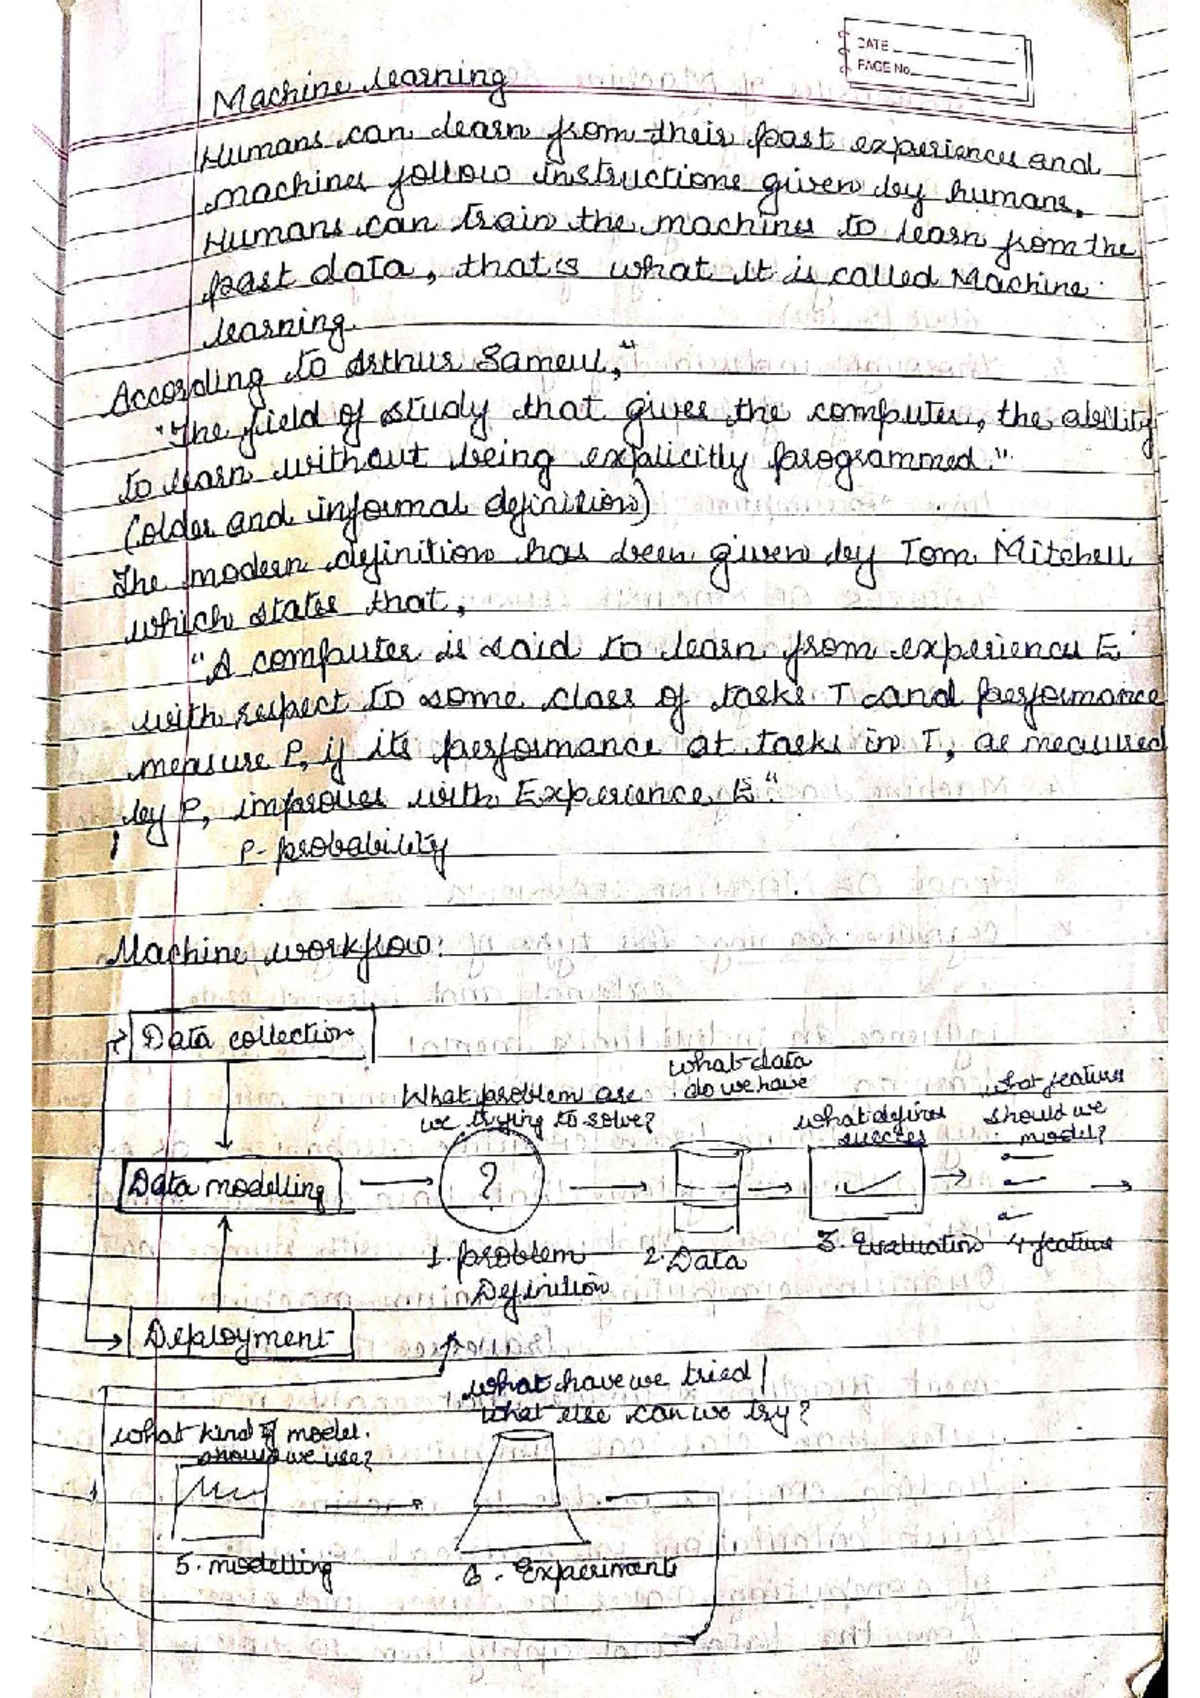 DATE
PAGE No.
Machine learning
Humans can learn from their past experiences and
machines follow instructions given by humans.
Humans can train the machines to learn from the
past data, that's what it is called Machine
learning.
According to Arthur Sameul,"
"The field of study that gives the computer, the ability
to learn without being explicitly programmed."
(older and informal definition)
The modern definition has been given by Tom Mitchell
which states that,
"A computer is said to learn from experiences E
with respect to some class of tasks T and performance
measure P, if its performance at tasks in T, as measured
by P, improves with Experience E."
P- probability
Machine workflow:
Data collection
Data modelling
Deployment
What problem are
we trying to solve?
?
1. problem
Definition
what data
do we have
2. Data
what defines
succes
3. Evaluation
what features
should we
model?
4. feature
what kind of model.
should we use?
5. modelling
what have we tried /
what else can we try?
6. Experiments